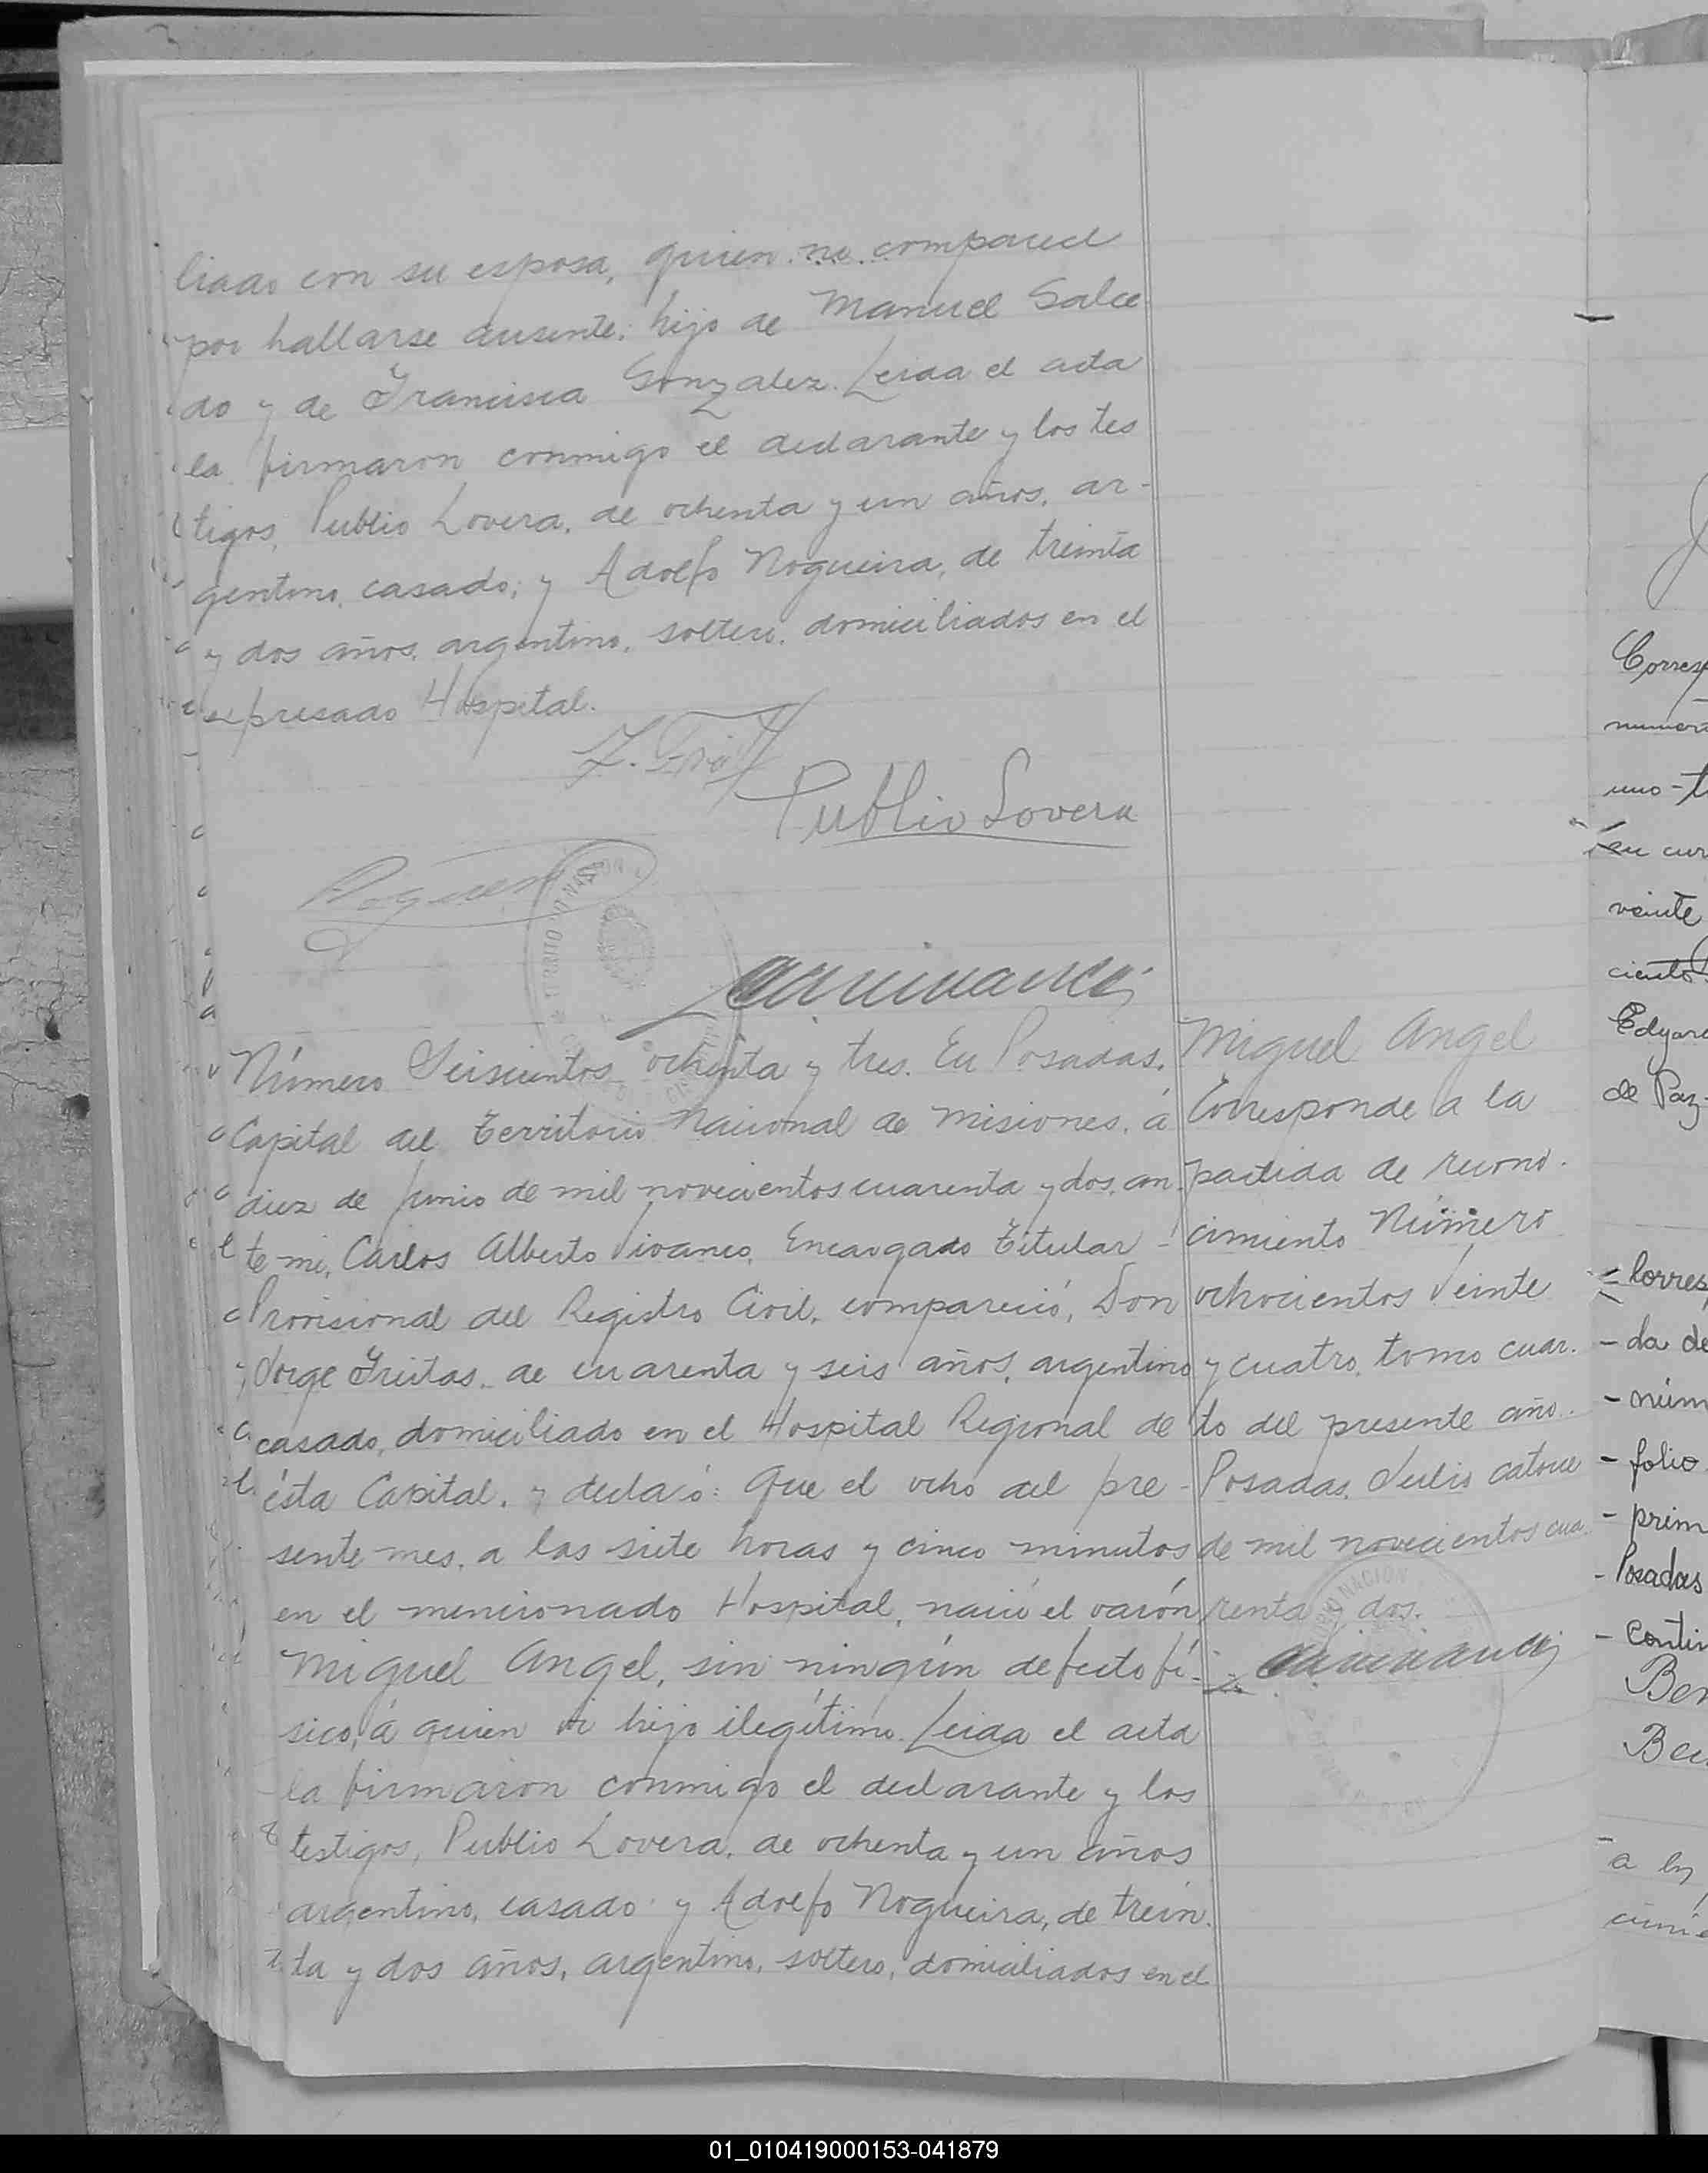 liado con su esposa, quien no comparece
por hallarse ausente; hijo de Manuel Salce
do y de Francisca Gonzalez. Leida el acta
la firmaron conmigo el declarante y los tes
tigos, Publio Lovera, de ochenta y un años, ar-
gentino, casado; y Adolfo Nogueira, de treinta
y dos años, argentino, soltero, domiciliados en el
expresado Hospital.
Publio Lovera
Número Seiscientos ochenta y tres. En Posadas,
Capital del Territorio Nacional de Misiones, á
diez de Junio de mil novecientos cuarenta y dos, an-
te mi, Carlos Alberto Vivanco, Encargado Titular
Provisional del Registro Civil, compareció, Don
Jorge Freitas, de cuarenta y seis años, argentino
casado, domiciliado en el Hospital Regional de
ésta Capital, y declaró: Que el ocho del pre-
sente mes, a las siete horas y cinco minutos
en el mencionado Hospital, nació el varón
Miguel Angel, sin ningún defecto fí-
sico, á quien vi hijo ilegítimo. Leida el acta
la firmaron conmigo el declarante y los
testigos, Publio Lovera, de ochenta y un años
argentino, casado y Adolfo Nogueira, de trein-
ta y dos años, argentino, soltero, domiciliados en el
Miguel Angel
Corresponde a la
partida de recono-
cimiento Número
ochocientos Veinte
y cuatro, tomo cuar-
to del presente año.
Posadas, Julio catorce
de mil novecientos cua-
renta y dos.
Corresp
uno-t
veinte
ciento
Edgar
de Paz-
Corres
- da de
- núm
- folio
- prim
- Posadas
- contin
Ber
a la
01_010419000153-041879